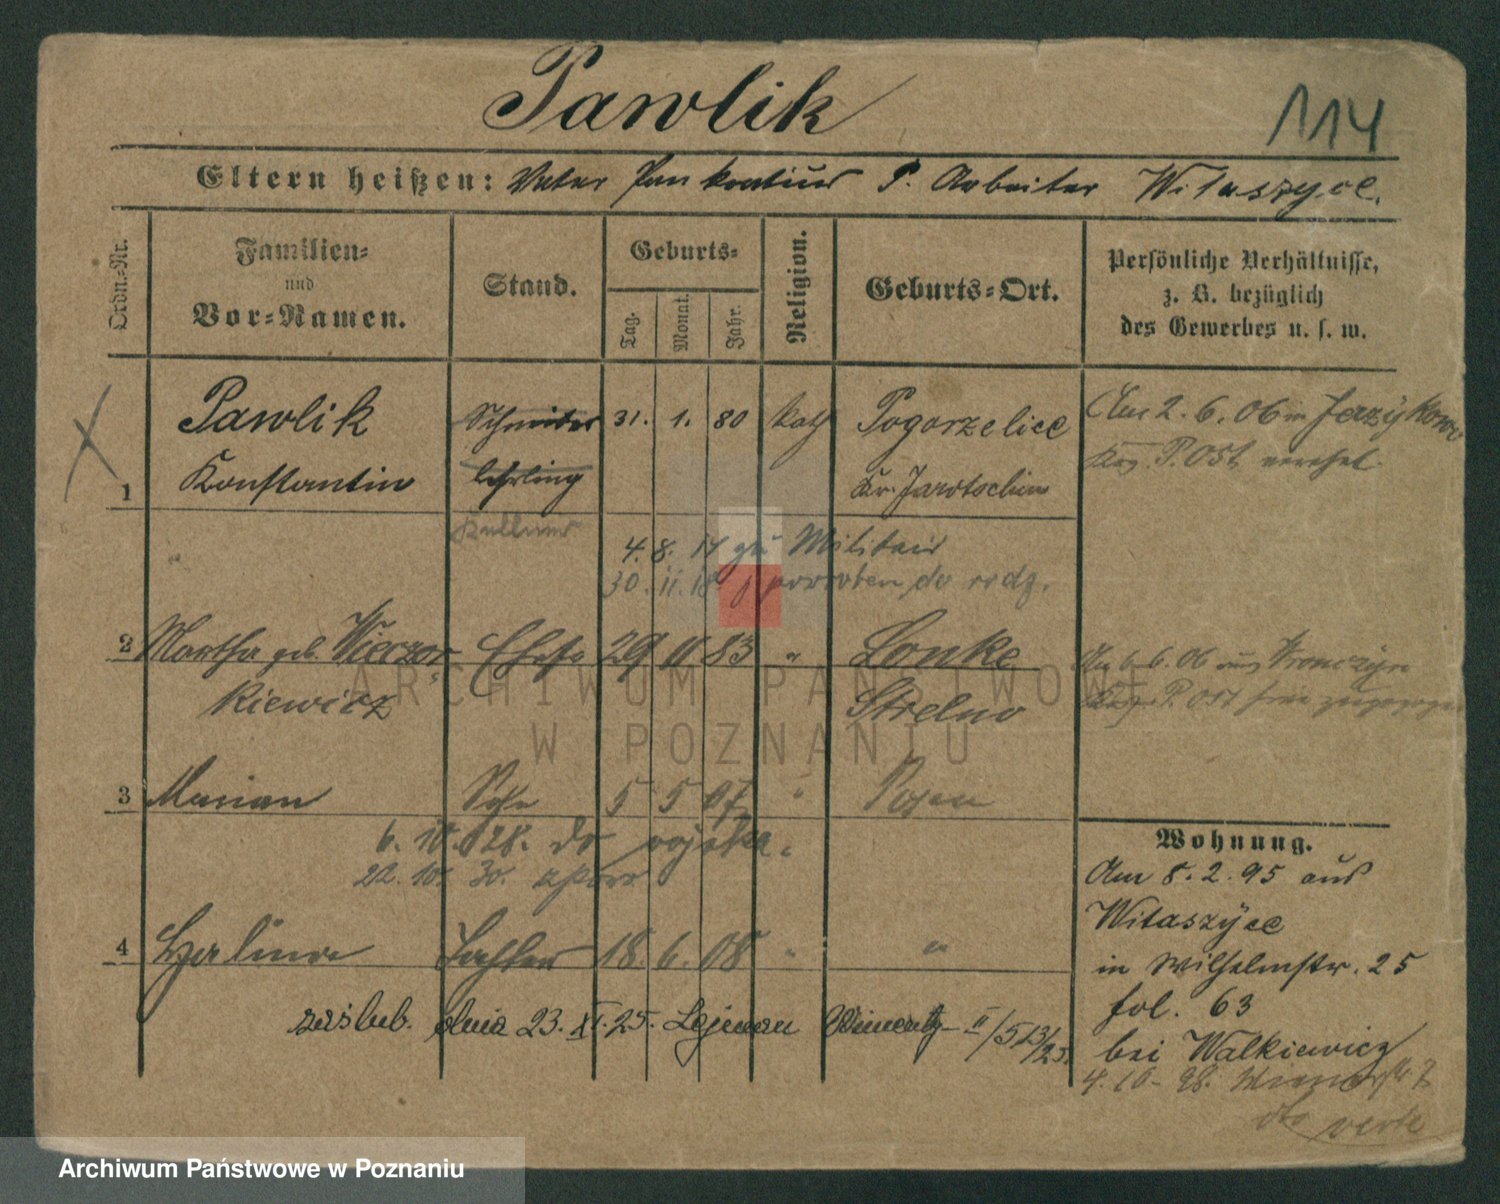 Pawlik
114
Eltern heißen: Vater Pankratius P. Arbeiter Witaszyce.
Ordn.-Nr.
Familien- und Vor-Namen.
Stand.
Geburts-
Tag. Monat. Jahr.
Religion.
Geburts-Ort.
Persönliche Verhältnisse,
z. B. bezüglich
des Gewerbes u. s. w.
Pawlik Schneider 31. 1. 80 kath Pogorzelice
1 Konstantin lehrling Kr. Jarotschin
Am 2. 6. 06 in Jerzykowo
Krs. P. Ost verehel.
Kellner
4. 8. 14 zu Militair
30. 11. 18 z powrotem do rodz.
2 Martha geb. Wieczor- Ehefr 29 11 83 " Lonke
kiewicz Strelno
6. 06 aus
P. Ost
3 Marian Sohn 5 5 07 " Posen
6. 10. 28. do wojska.
22. 10. 30.
4 Halina Tochter 18. 6. 08 " "
zaślub. dnia 23. XI. 25.
Wohnung.
Am 8. 2. 95 aus
Witaszyce
in Wilhelmstr. 25
fol. 63
bei Walkiewicz
4. 10. 98.
verte
ARCHIWUM PAŃSTWOWE
W POZNANIU
Archiwum Państwowe w Poznaniu